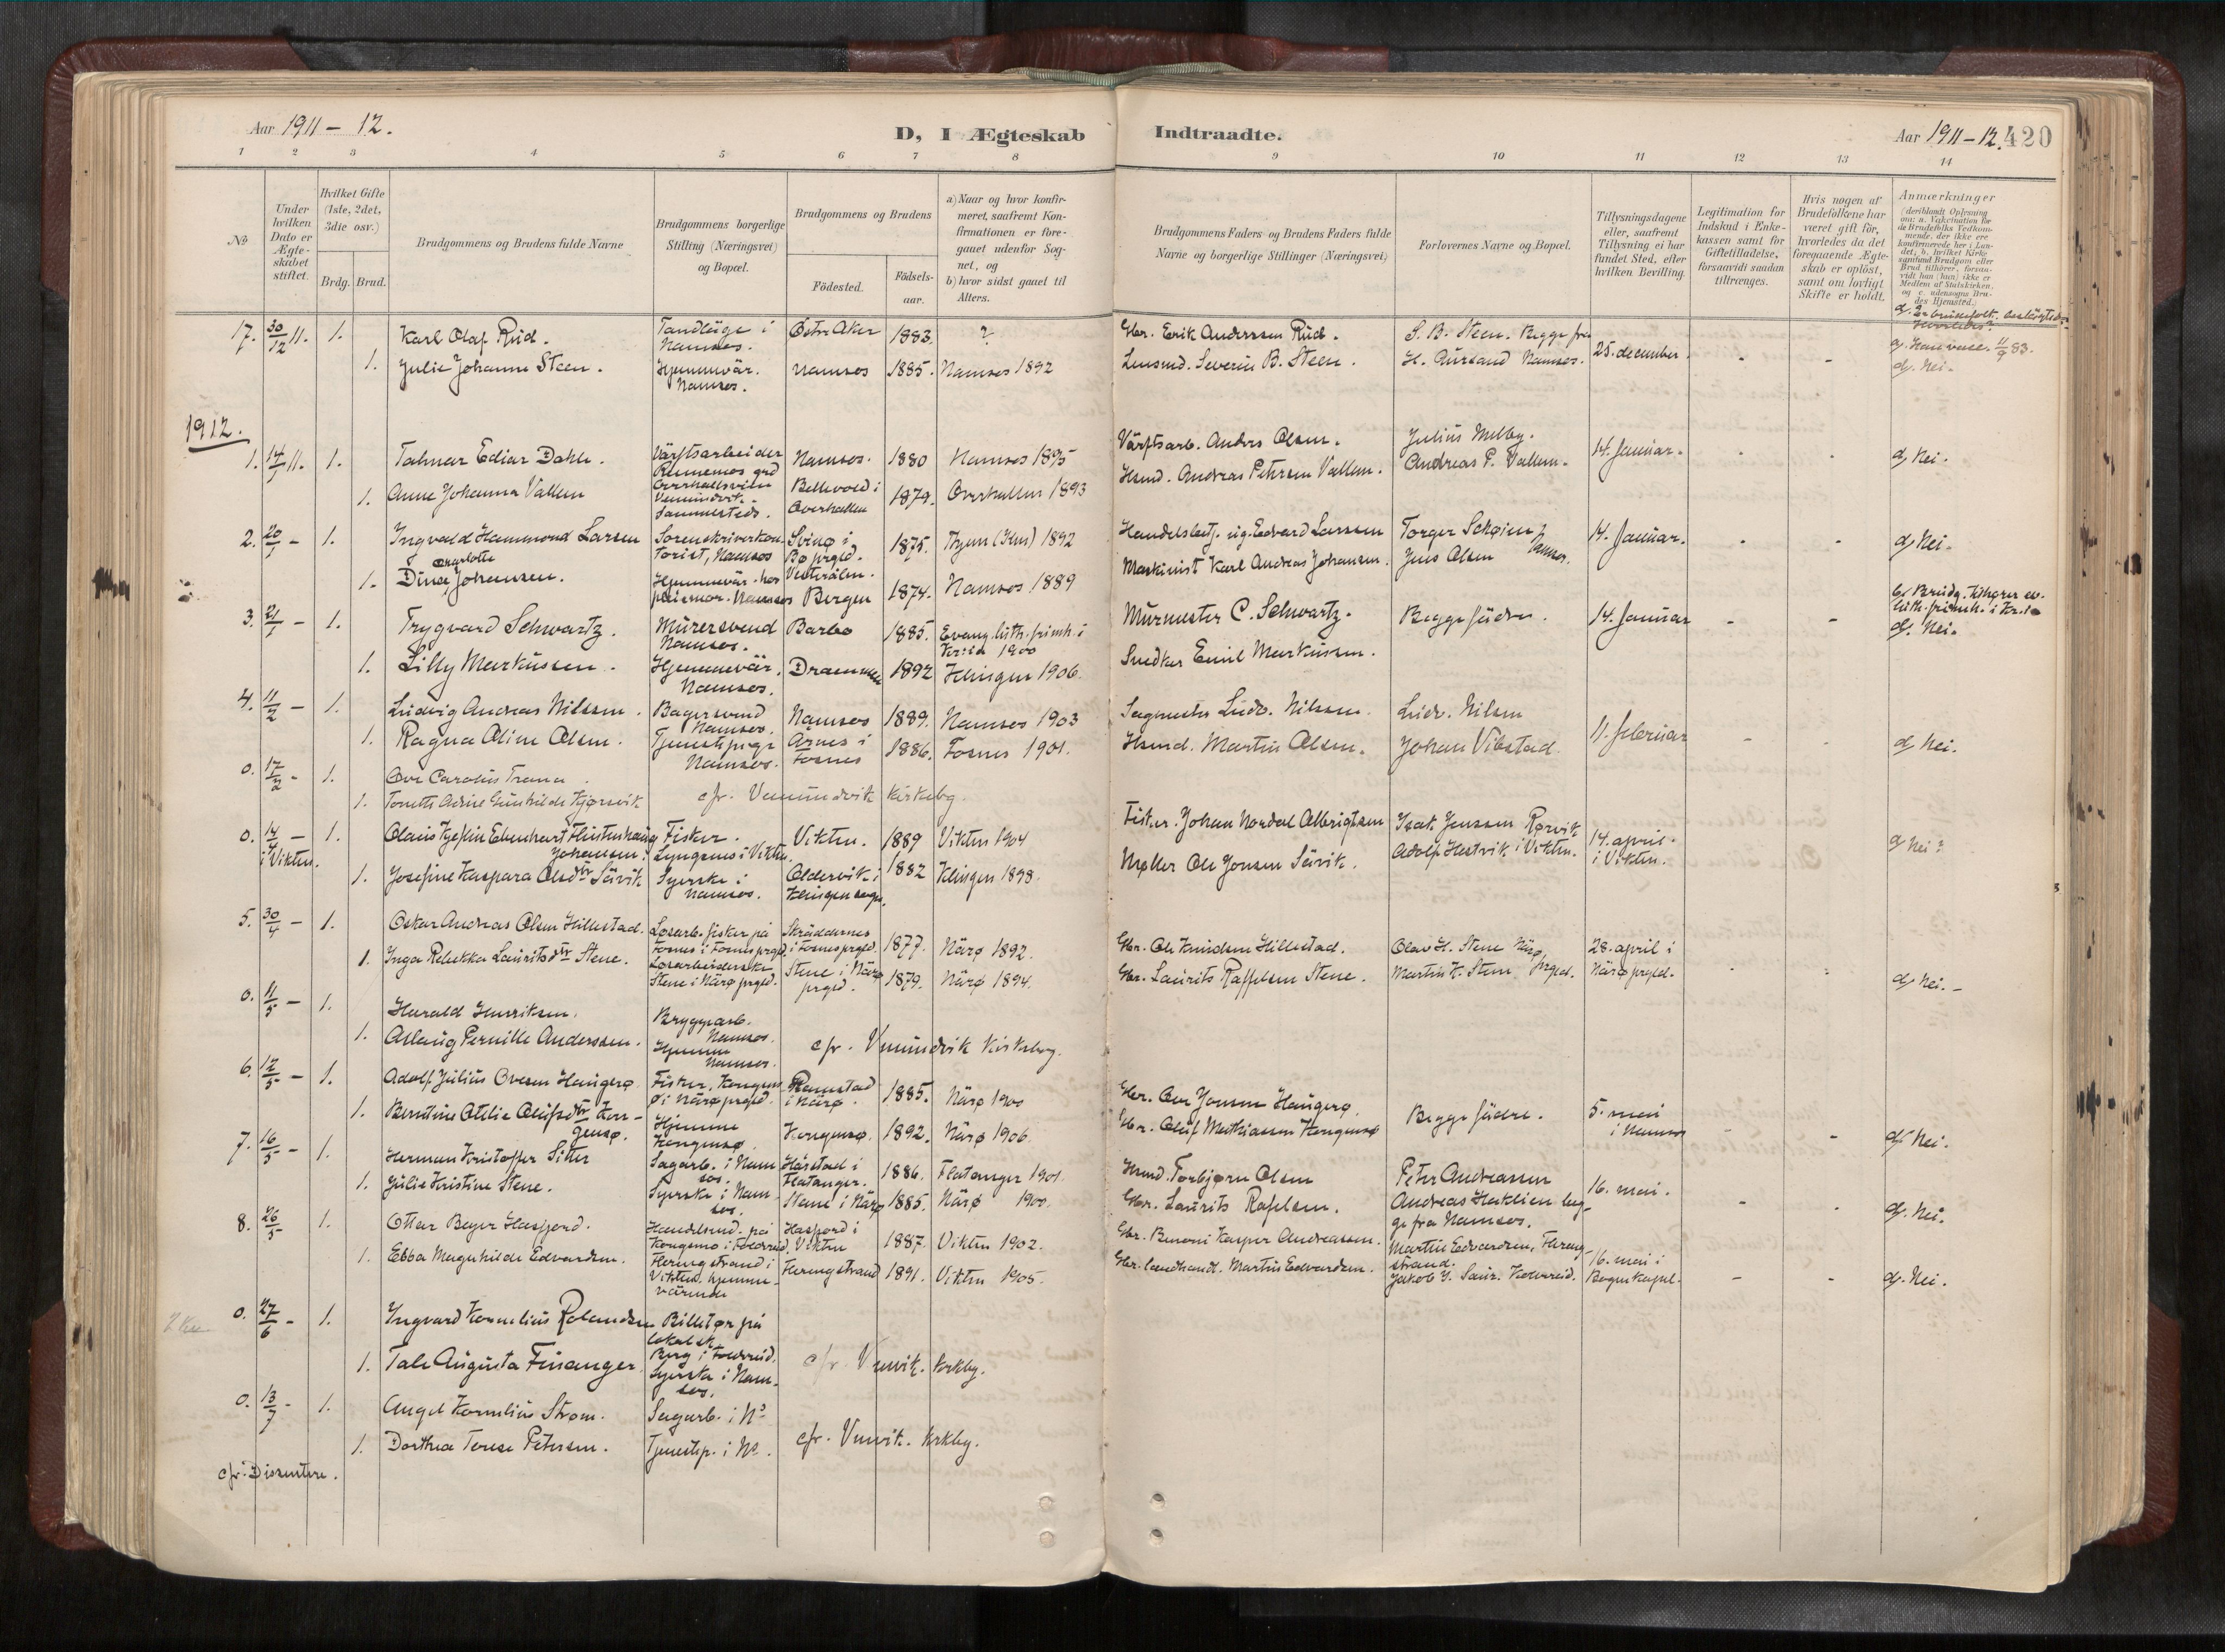 Aar 1911 - 12.
D, I Ægteskab Indtraadte.
Aar 1911-12. 420
1 2 3 4 5 6 7 8 9 10 11 12 13 14
No
Under hvilken Dato er Ægteskabet stiftet.
Hvilket Gifte (1ste, 2det, 3die osv.)
Brdg. Brud.
Brudgommens og Brudens fulde Navne
Brudgommens borgerlige Stilling (Næringsvei) og Bopæl.
Brudgommens og Brudens
Födested.
Födselsaar.
a) Naar og hvor konfirmeret, saafremt Konfirmationen er foregaaet udenfor Sognet, og
b) hvor sidst gaaet til Alters.
Brudgommens Faders og Brudens Faders fulde Navne og borgerlige Stillinger (Næringsvei)
Forlovernes Navne og Bopæl.
Tillysningsdagene eller, saafremt Tillysning ei har fundet Sted, efter hvilken Bevilling.
Legitimation for Indskud i Enkekassen samt for Giftetilladelse, forsaavidt saadan tiltrænges.
Hvis nogen af Brudefolkene har været gift för, hvorledes da det foregaaende Ægteskab er oplöst, samt om lovligt Skifte er holdt.
Anmærkninger
17. 30/12 11. 1. Karl Olaf Rud. Tandlæge i Namsos. Östre Aker 1883. ? Gbr. Erik Anderssen Rud. S. B. Steen. Begge fra
1. Julie Johanne Steen. Hjemmevær. Namsos. Namsos 1885. Namsos 1892 Lensmd. Severin B. Steen. H. Aursand Namsos. 25. december - - d. Nei.
1912.
1. 14/1 11. 1. Talmar Ediar Dahle. Værftsarbeider Namsos. 1880 Namsos 1895 Værftsarb. Anders Olsen. Julius Melby. 14. Januar. - - d. Nei.
1. Anne Johanna Vallem Overhallsveien Vemundvik. Sammesteds. Bellevold i Overhallen 1879. Overhallen 1893 Husmd. Andreas Petersen Vallem. Andreas P. Vallem.
2. 20/1 - 1. Ingvald Hammond Larsen Sorenskriverkontorist, Namsos Svinø i Bø prgld. Vesterålen. 1875. 1892 Handelsbetj. Edvard Larssen Torger Schøien 14. Januar. - - d. Nei.
1. Dina Charlotte Johansen. Hjemmevær. hos Namsos Bergen 1874. Namsos 1889 Maskinist Karl Andreas Johansen. Jens Olsen Namsos.
3. 21/1 - 1. Trygvard Schwartz. Murersvend Namsos. Barbo 1885. Evang. luth. frimh. i Kr.ia 1900 Murmester C. Schwartz. Begge fædre. 14. Januar - - b. Brudg. tilhører ev. luth. frimh. i Kr.ia d. Nei.
1. Lilly Markussen. Hjemmevær. Namsos. Drammen 1892 Klingen 1906. Snedker Emil Markussen.
4. 11/2 - 1. Ludvig Andreas Nilssen. Bagersvend Namsos. Namsos 1889. Namsos 1903 Sagmester Ludv. Nilssen. Ludv. Nilsen 11. februar - - d. Nei.
1. Ragna Oline Olsen. Tjenestepige Namsos. Årnes i Fosnes 1886. Fosnes 1901. Husmd. Martin Olsen. Johan Vibstad.
0. 17/2 - 1. Ove Carolius Trana.
1. Gunhilde Kjørsvik cfr. Vemundvik kirkebog.
0. 14/4 - i Vikten. 1. Ebenhart Johansen. Fisker. i Vikten. Vikten. 1889 Vikten 1904 Fisker. Johan Nordal Albrigtsen Isak Jenssen Rørvik 14. april i Vikten. d. Nei?
1. Josefine Kaspara Olsdtr Sævik Syerske i Namsos. Aldersvik i Klingen sogn. 1882 Klingen 1898. Møller Ole Jonsen Sævik. Adolf Hestvik i Vikten.
5. 30/4 - 1. Oskar Andreas Olsen Hillestad. Løsarb. fisker på Fosnes i Fosnes prgld. i Fosnes prgld. 1877. Nærø 1892. Gbr. Ole Knudsen Hillestad. Olav H. Stene Nærø prgld. 28. april i Nærø prgld. - - d. Nei. -
1. Inga Rebekka Lauritsdtr Stene. Løsarbeiderske Stene i Nærø prgld. Stene i Nærø prgld. 1879. Nærø 1894. Gbr. Laurits Raffelsen Stene. Martin K. Stene
0. 11/5 - 1. Harald Henriksen. Bryggearb. Namsos.
1. Aslaug Pernille Anderssen. Hjemme Namsos. cfr. Vemundvik kirkebog.
6. 12/5 - 1. Adolf Julius Ovesen Haugerø. Fisker, Kongensø i Nærø prgld. Ramstad i Nærø. 1885. Nærø 1900 Gbr. Ove Jonsen Haugerø. Begge fædre. 5. mai i Namsos - - d. Nei.
1. Berntine Otelie Olufsdtr Kongensø. Hjemme Kongensø. Kongensø. 1892. Nærø 1906. Gbr. Oluf Mathiassen Kongensø
7. 16/5 - 1. Herman Kristoffer Sitter Sagarb. i Namsos. Hårstad i Flatanger. 1886. Flatanger 1901. Husmd. Torbjørn Olsen Peter Andreassen 16. mai. - - d. Nei.
1. Julie Kristine Stene. Syerske i Namsos. Stene i Nærø 1885. Nærø 1900. Gbr. Laurits Rafelsen. Andreas Haklien begge fra Namsos.
8. 26/5 1. Ottar Beyer Hasfjord. Handelsmd. på Kongsmo i Foldereid. Hasfjord i Vikten 1887. Vikten 1902. Gbr. Benoni Kasper Andreassen. Martin Edvardsen, Flerengstrand. 16. mai i
1. Ebba Magnhilde Edvardsen. Flerengstrand i Vikten, hjemmeværende Flerengstrand 1891. Vikten 1905. Gbr. landhandl. Martin Edvardsen. Jakob Kolvereid. - - d. Nei.
0. 27/6 - 1. Ingvard Kornelius Rolandsen Billetør på lokalsk. Berg i Foldereid.
1. Tale Augusta Finanger. Syerske i Namsos. cfr. Vemvik. kirkbg.
0. 13/7 - 1. Angel Kornelius Strøm. Sagarb. i Ns
1. Dorthea Terese Petersen. Tjenestep. i Ns. cfr. Vemvik. kirkbg.
cfr. Dissentere.